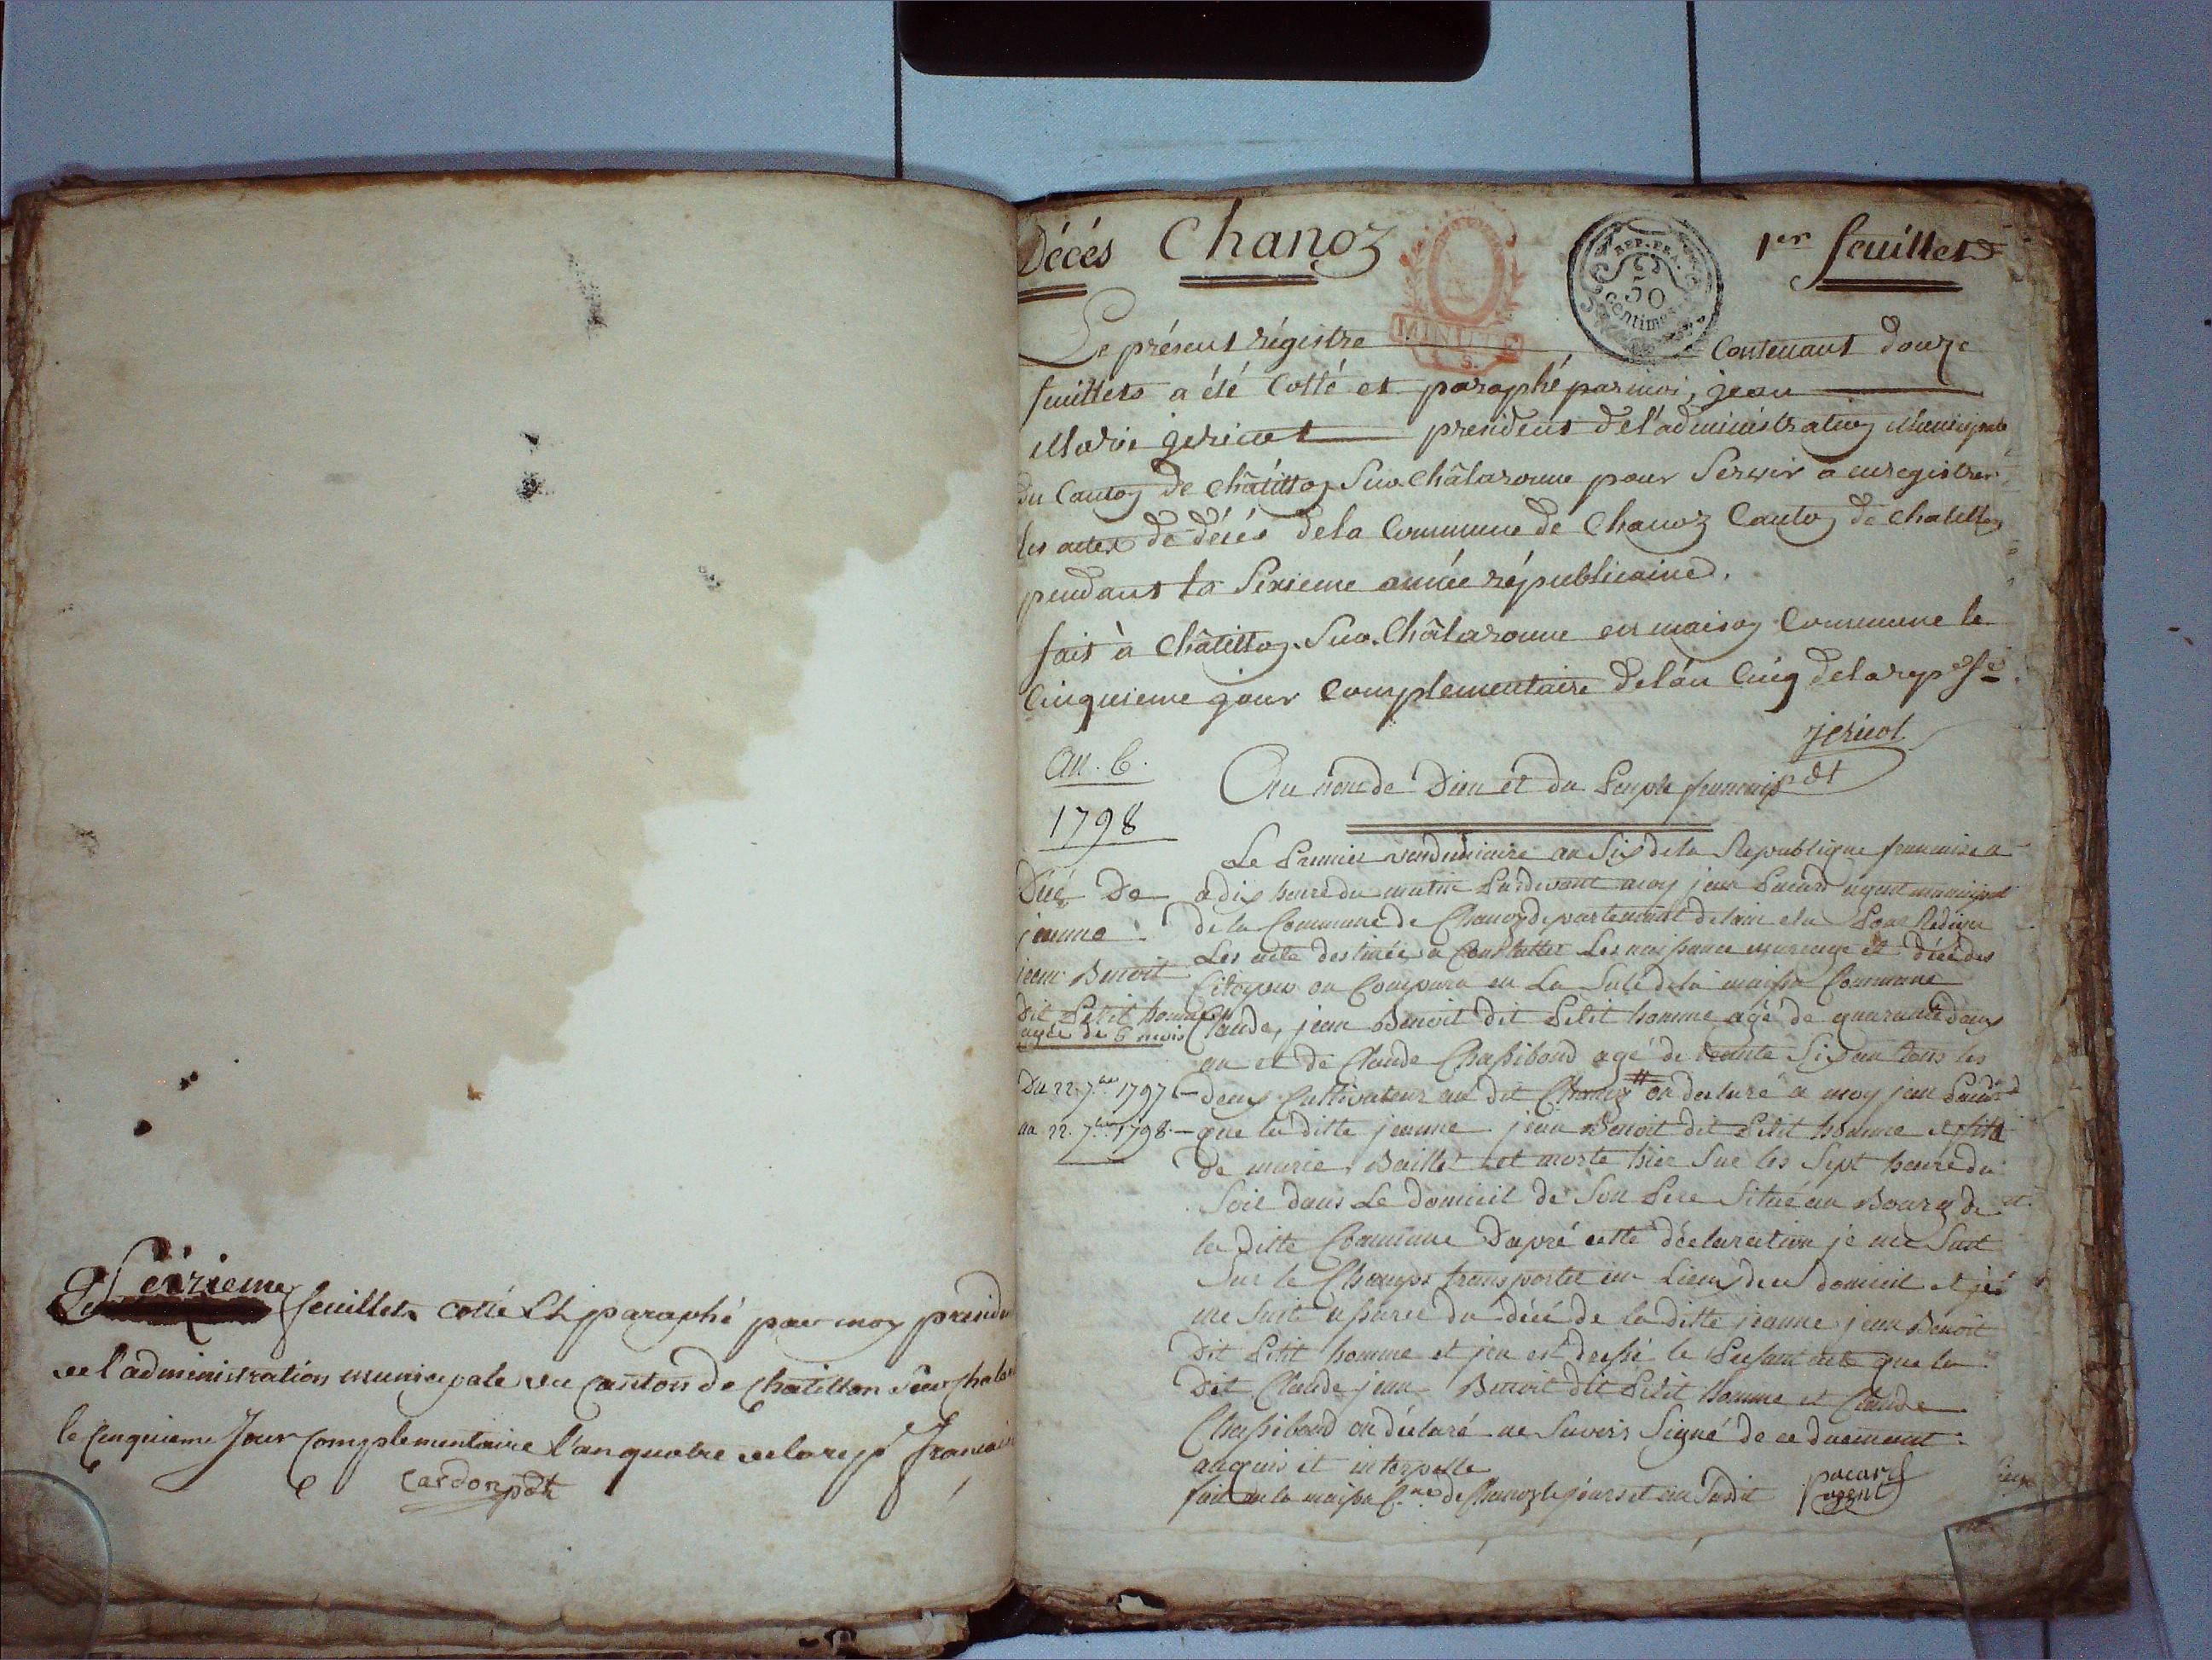 Le Seizieme feuillets cotté Et paraphé par moy presid
de l'administration municipale du canton de Chatillon Sur Chala
le Cinquieme Jour Complementaire l'an quatre de la rep francai
Cardon pdt
Décés Chanoz 1er feuillet
REP. FRA.
50
Centimes
MINUTE
Le présent régistre contenant douze
feuillets a été Cotté et paraphé par moi, jean
Marie jericot président de l'administration Municipale
du Canton de Châtillon Sur Châlaronne pour Servir a enregistrer
les actes de décés de la Commune de Chanoz Canton de Chatillon
pendant la Sixieme année républicaine.
fait à Châtillon Sur Châlaronne en maison Commune le
Cinquieme jour Complementaire de l'an Cinq de la rep fse
jericot
pdt
An. 6.
1798
Au nom de Dieu et du Peuple francais
Le Premier vendemiaire an Six de la Republique francaise a
Décé De
jeanne
jean Benoit
dit Petit homme
agée de 6 mois
Du 22 7bre 1797
au 22 7bre 1798
a dix heure du matin Pardevant moy jean Pacard agent municipal
de la Commune de Chanoz departement de lain elu Pour Rediger
Les acte destinée a Constatter Les naissance mariage et décé des
Citoyen on Comparu en La Sale de la maison Commune
Claude, jean Benoit dit Petit homme agé de quarante deux
an et de Claude Chassiboud agé de trante Six an tous les
deux Cultivateur au dit Chanoz on declaré a moy jean Pacard
que la ditte jeanne jean Benoit dit Petit homme et fille
de marie Baillet et morte hier Sur les Sept heure du
Soir dans Le domicil de Son Pere Situé au Bourg de
la ditte Commune Dapré cette déclaration je me Suit
Sur le Champs transporter au Lieu de ce domicil et je
me Suit assuree du décé de la ditte jeanne jean Benoit
dit Petit homme et jen est dressé le Présant acte que le
Dit Claude jean Benoit dit Petit homme et Claude
Chassiboud on déclaré ne Savoir Signé de ce duement
anquis et interpelle
fait en la maison Cne de Chanoz le jours et an Susdit pacard
agent